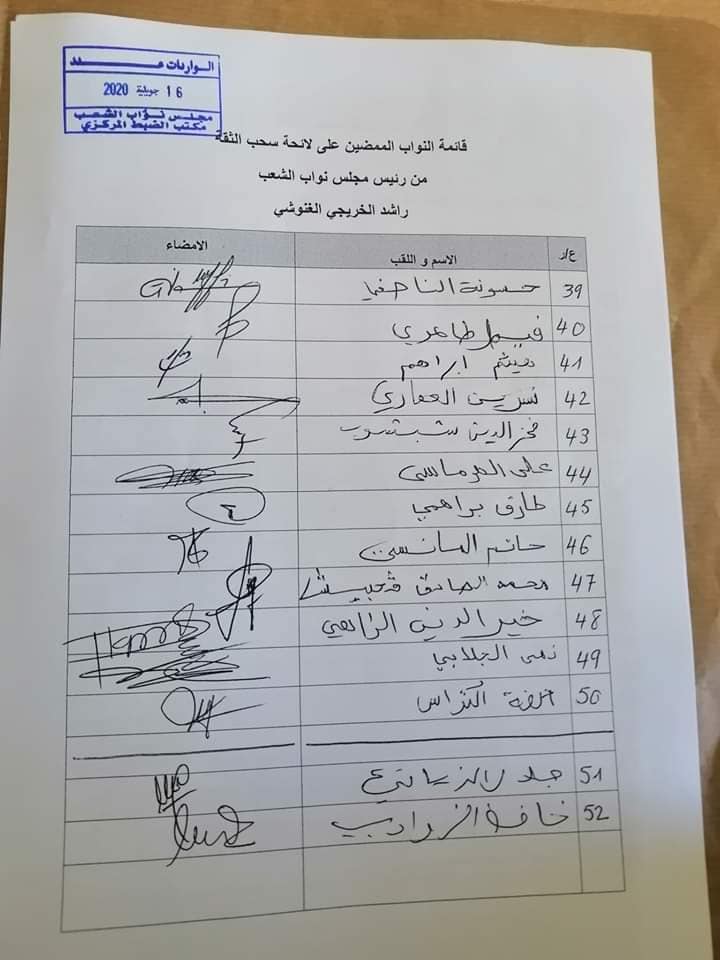 الواردات عـــدد
16 جويلية 2020
مجلس نواب الشعب
مكتب الضبط المركزي
قائمة النواب الممضين على لائحة سحب الثقة
من رئيس مجلس نواب الشعب
راشد الخريجي الغنوشي
ع/ر الاسم و اللقب الامضاء
39 حسونة الناصفي
40
41 هيثم ابراهم
42 نسرين العماري
43 فخر الدين شبشوب
44 علي الهرماسي
45 طارق براهمي
46 حاتم المانسي
47 محمد الصادق قحبيش
48 خير الدين الزاهي
49 نهى الجلابي
50 الكراس
51 جلال الزياتي
52